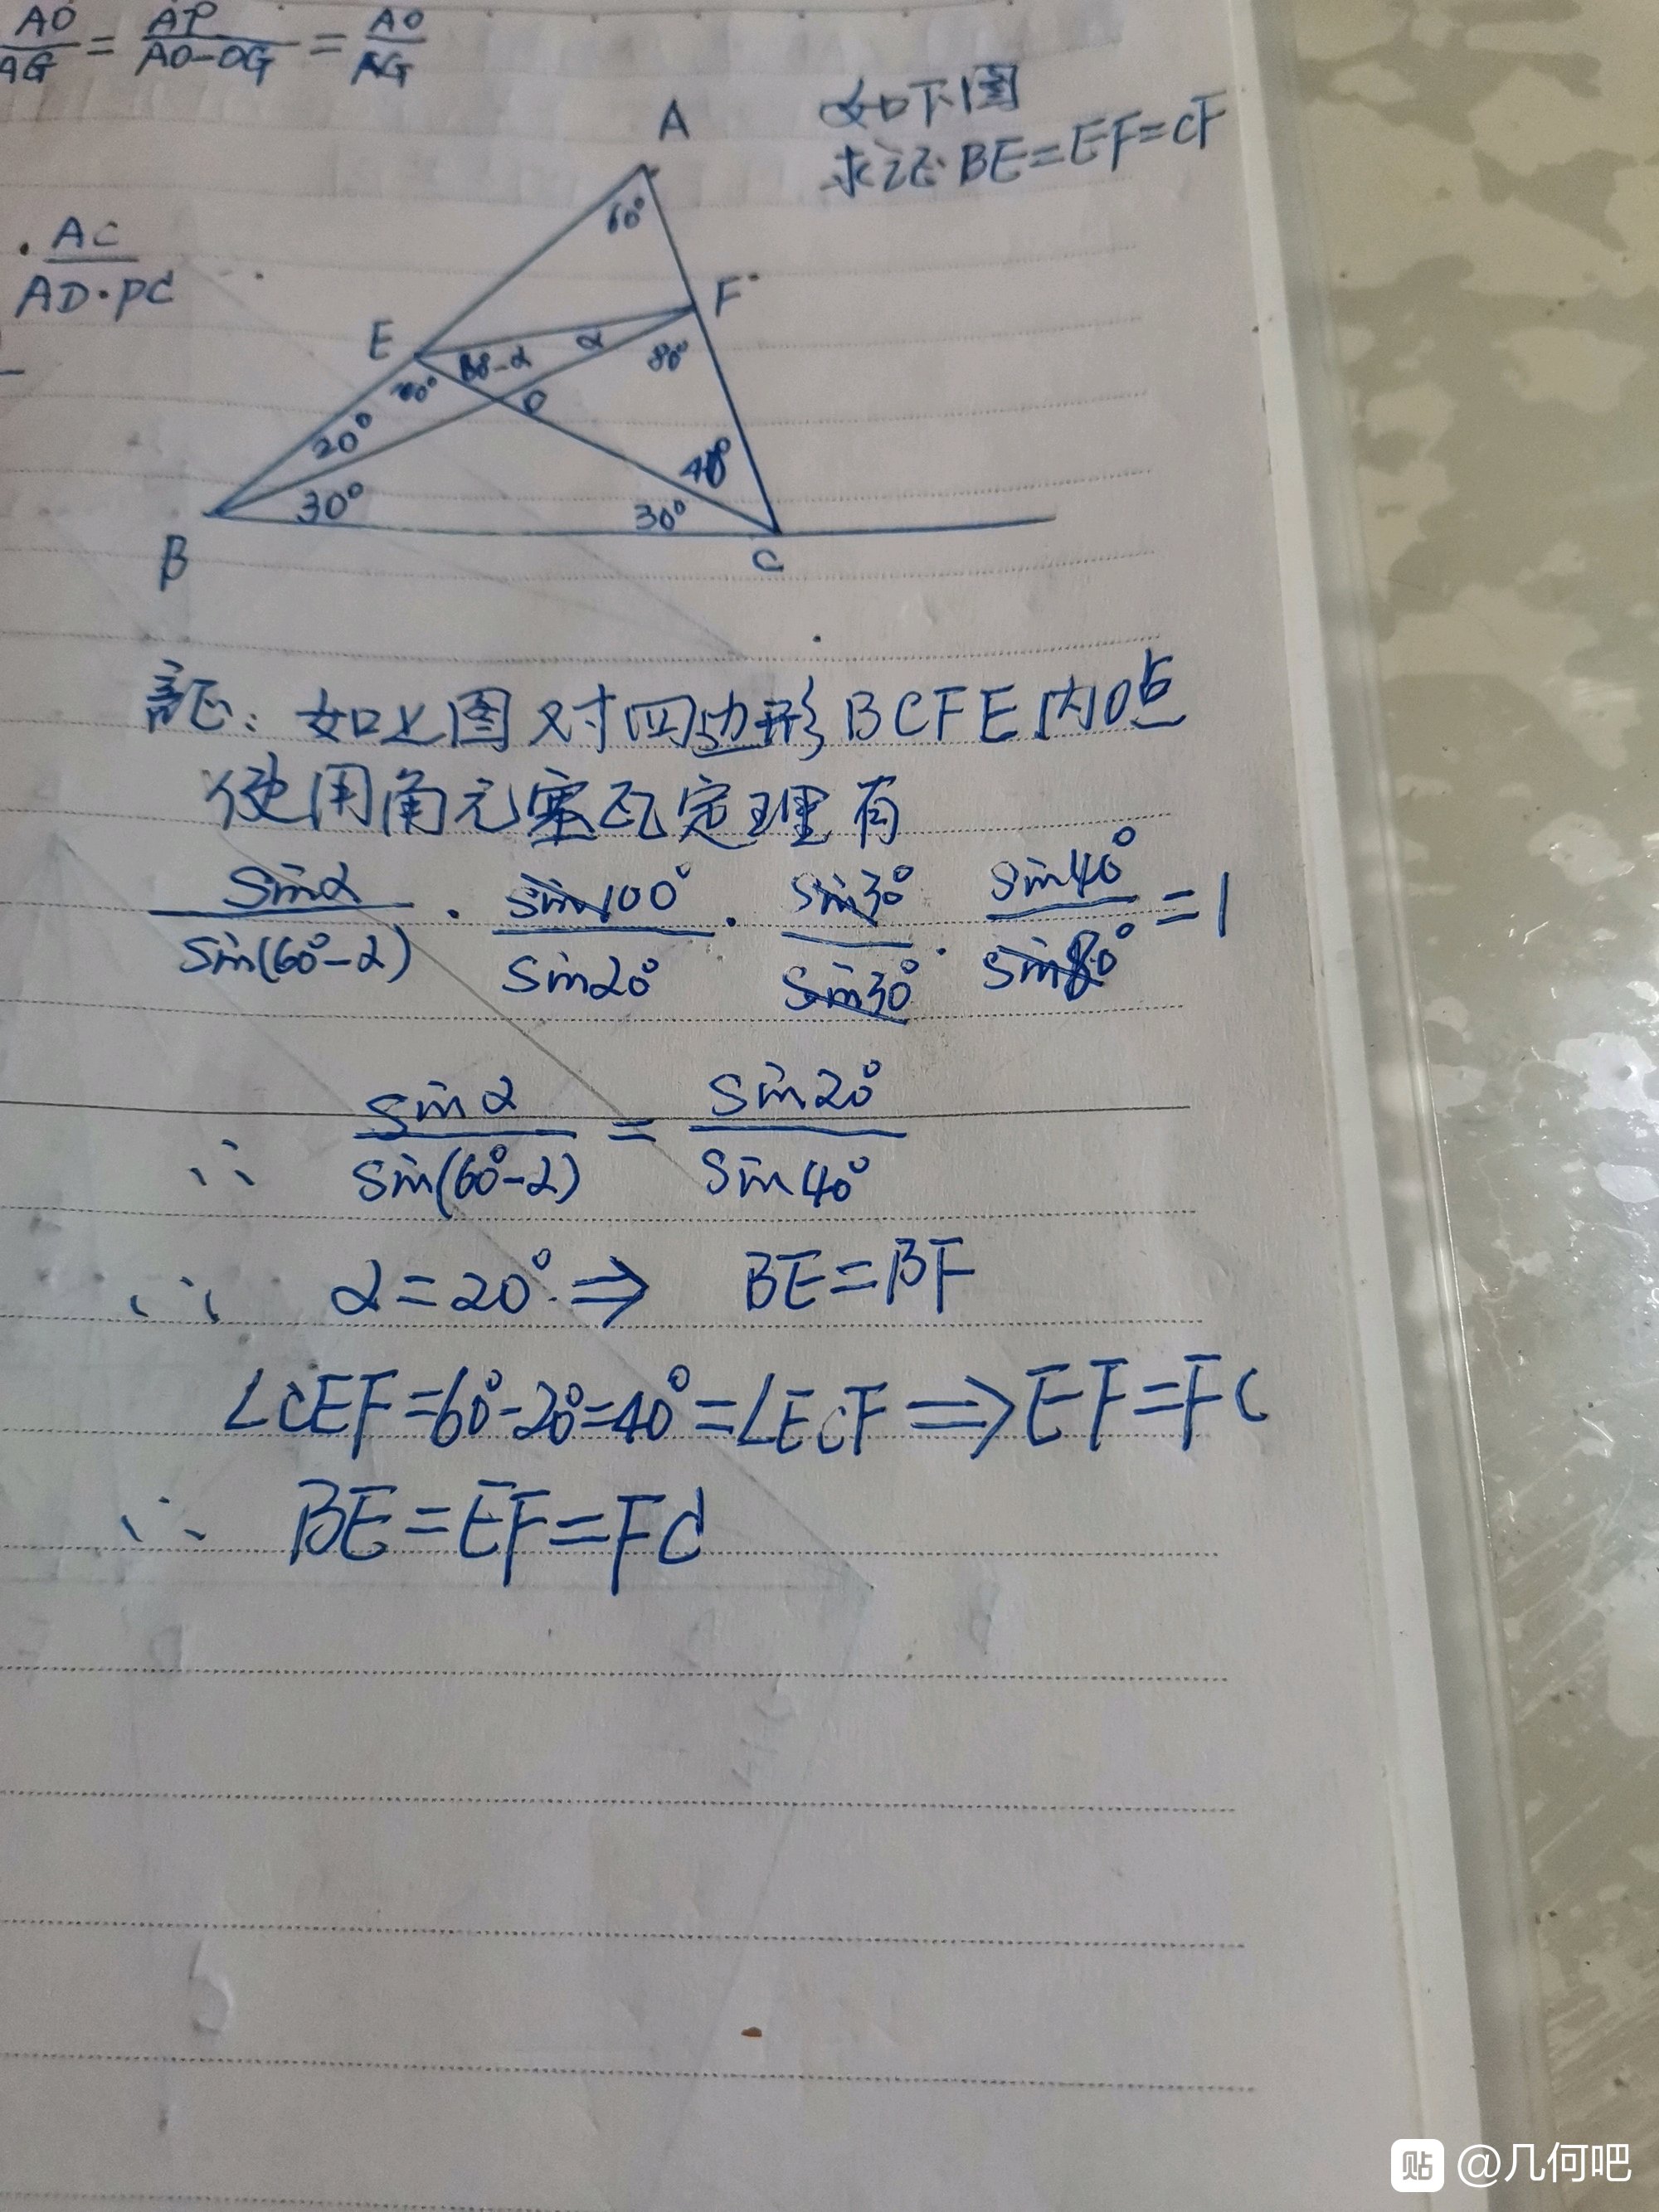 AO/AG = AP/(AO-OG) = AO/AG
如下图
求证 BE=EF=CF
· AC/(AD·PC)
A
60°
F
E
α
60-α
80°
O
20°
40°
30°
30°
B
C
証:如上图 对四边形BCFE内O点
使用角元塞瓦定理有
sinα/sin(60°-α) · sin100°/sin20° · sin30°/sin30° · sin40°/sin80° = 1
∴ sinα/sin(60°-α) = sin20°/sin40°
∴ α=20° ⇒ BE=BF
∠CEF=60°-20°=40°=∠ECF ⇒ EF=FC
∴ BE=EF=FC
贴 @几何吧